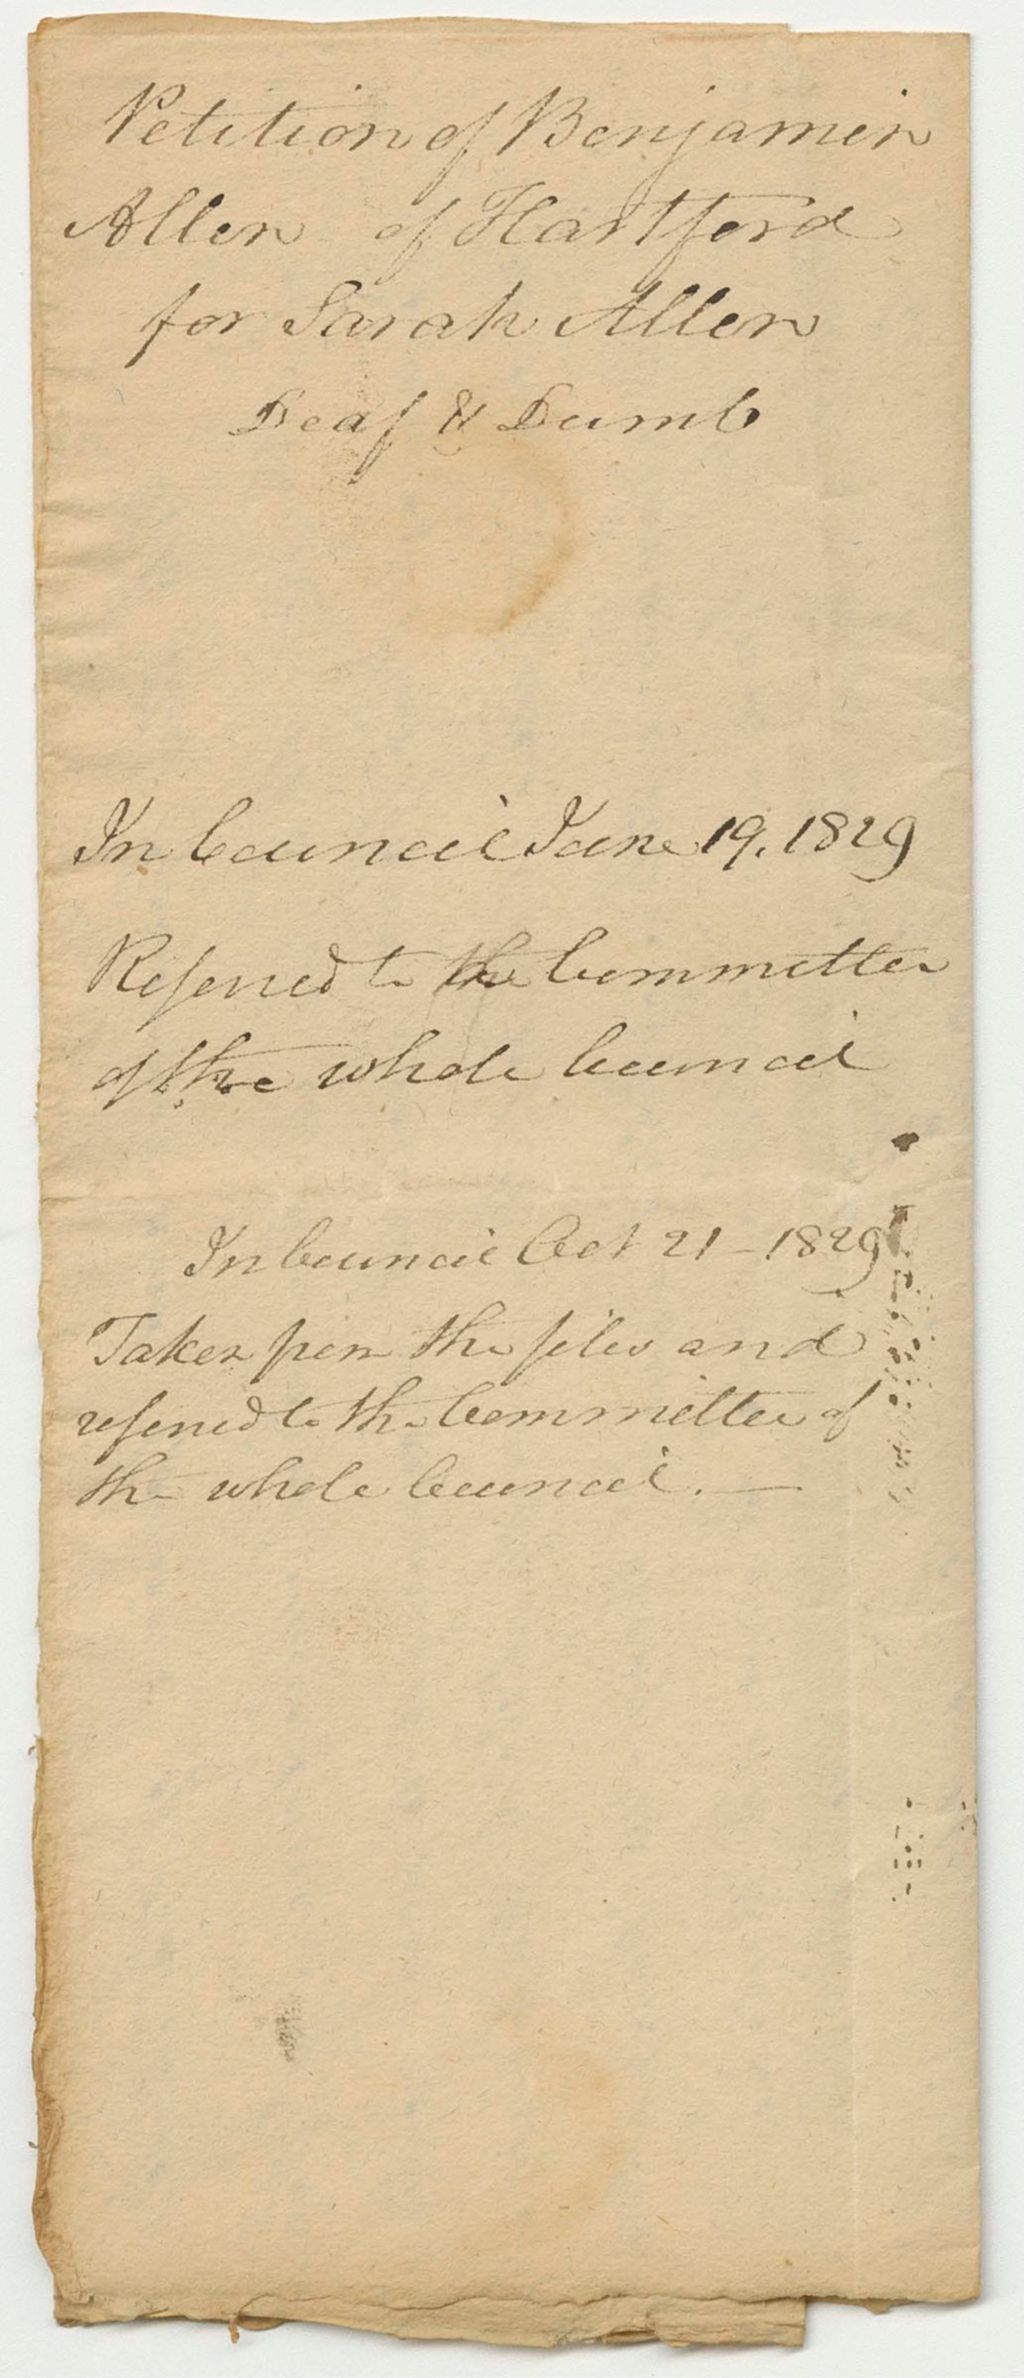 Petition of Benjamin
Allen of Hartford
for Sarah Allen
Deaf & Dumb
In Council June 19. 1829
Referred to the Committee
of the whole Council
In Council Oct 21 - 1829
Taken from the files and
referred to the Committee of
the whole Council. —